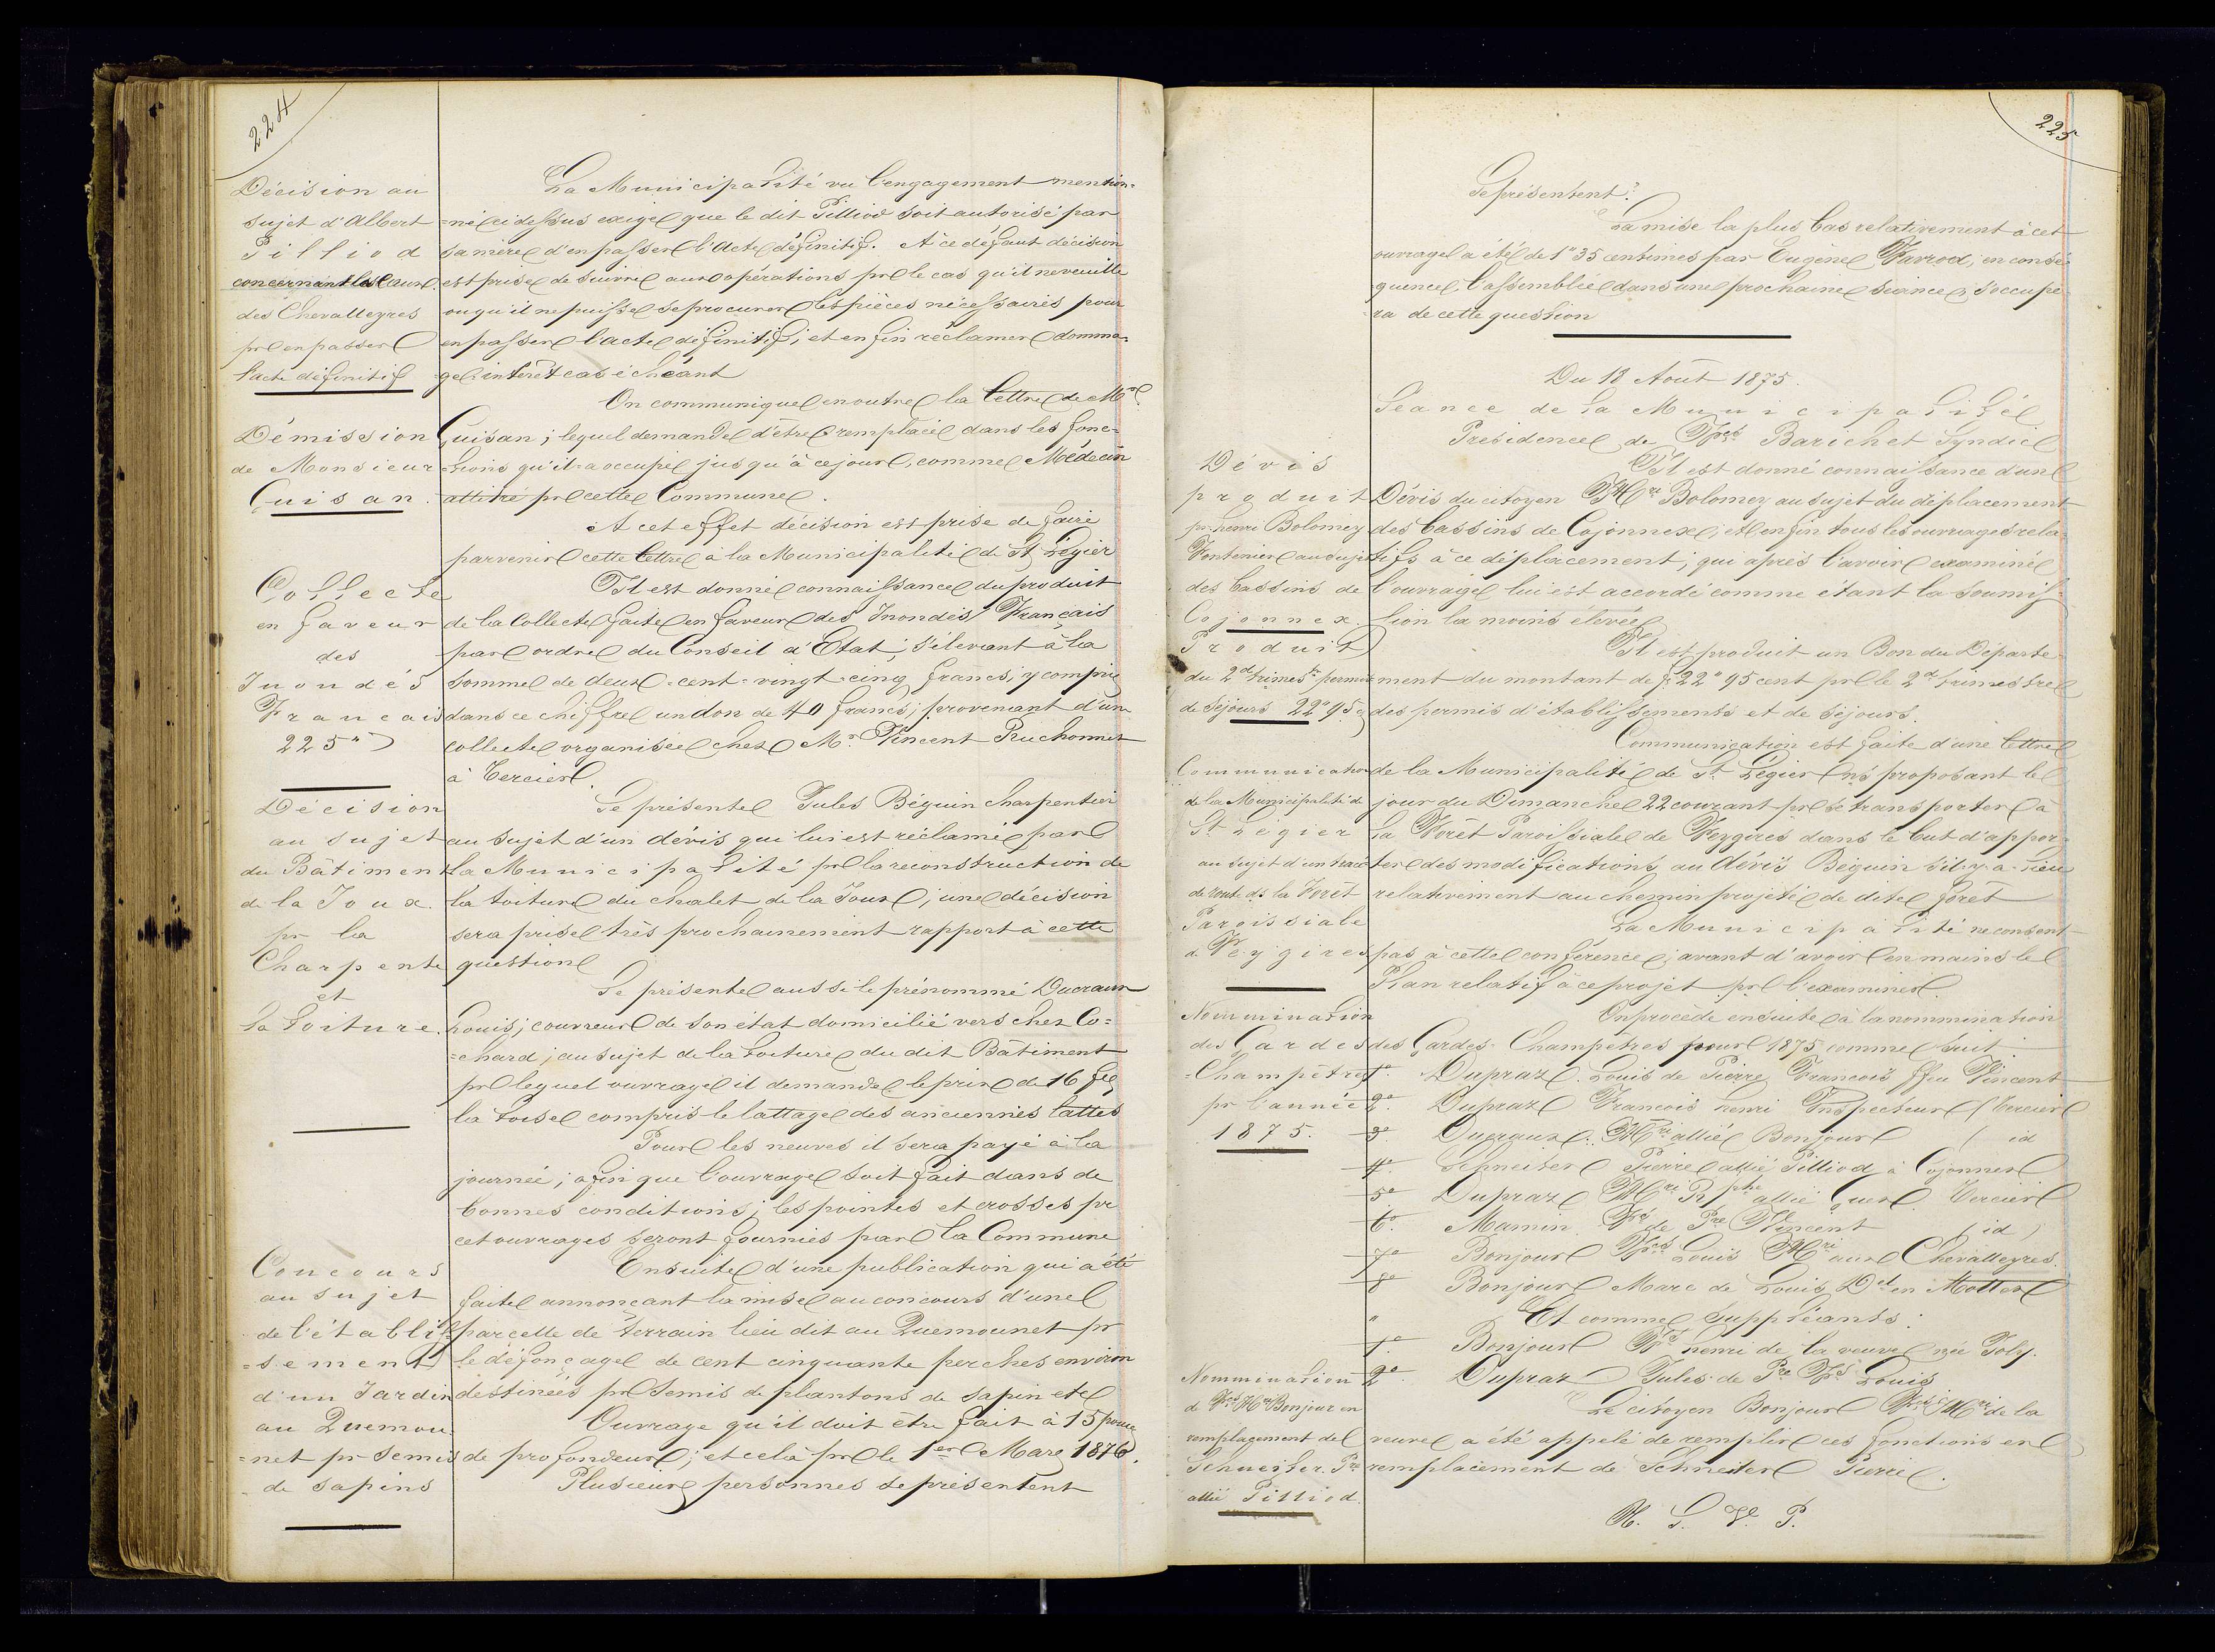 224
Décision au
sujet d'Albert
Pilliod
concernant les eaux
des Chevalleyres
pr en passer
l'acte définitif
La Municipalité vu l'engagement mention=
=né ci dessus exige que le dit Pilliod soit autorisé par
sa mère d'en passer l'acte définitif. A ce défaut décision
est prise de suivre aux opérations pr le cas qu'il ne veuille
ou qu'il ne puisse se procurer les pièces nécessaires pour
en passer l'acte définitif; et enfin réclamer domma=
=ge intérêt cas échéant
Démission
de Monsieur
Cuisan.
On communique en outre la lettre de Mr
Cuisan; lequel demande d'être remplacé dans les fonc=
=tions qu'il a occupé jusqu'à ce jour, comme Médecin
attitré pr cette Commune.
A cet effet décision est prise de faire
parvenir cette lettre à la Municipalité de St Légier
Collecte
en faveur
des
Inondés
Français
225"
Il est donné connaissance du produit
de la Collecte faite en faveur des Inondés Français
par ordre du Conseil d'Etat; s'élevant à la
somme de deux=cent=vingt=cinq francs; y compris
dans ce chiffre un don de 40 francs; provenant d'une
collecte organisée chez Mr Vincent Ruchonnet
à Tercier.
Décision
au sujet
du Bâtiment
de la Joux.
pr la
Charpente
et
la toiture.
Se présente Jules Béguin charpentier
au sujet d'un dévis qui lui est réclamé par
la Municipalité pr la reconstruction de
la toiture du chalet de la Joux; une décision
sera prise très prochainement rapport à cette
question
Se présente aussi le prénommé Ducraux
Louis; couvreur de son état domicilié vers chez Co=
=chard; au sujet de la toiture du dit Bâtiment
pr lequel ouvrage il demande le prix de 16 fcs
la toise compris le lattage des anciennes lattes
Pour les neuves il sera payé à la
journée; afin que l'ouvrage soit fait dans de
bonnes conditions; les pointes et crosses pr
cet ouvrages seront fournies par la Commune
Concours
au sujet
de l'établis
=sement
d'un Jardin
au Quemou
=net pr semis
de sapins
Ensuite d'une publication qui a été
faite annonçant la mise au concours d'une
parcelle de terrain lieu dit au Quemounet pr
le défonçage de cent cinquante perches environ
destinées pr semis de plantons de sapin etc
Ouvrage qu'il doit être fait à 15 pouces
de profondeur; et cela pr le 1er Mars 1876.
Plusieurs personnes se présentent
225
Se présentent?
La mise la plus bas relativement à cet
ouvrage a été de 1" 35 centimes par Eugène Varrod; en consé=
=quence l'assemblée dans une prochaine séance; s'occupe=
=ra de cette question
Du 18 Août 1875.
Séance de la Municipalité
Présidence de Fçois Barichet Syndic
Dévis
produit
pr henri Bolomey
Fontenier au sujet
des bassins de
Cojonnex.
Il est donné connaissance d'un
Dévis du citoyen Hri Bolomey au sujet du déplacement
des bassins de Cojonnex, et enfin tous les ouvrages rela=
tifs à ce déplacement; qui après l'avoir examiné
l'ouvrage lui est accordé comme étant la soumis=
sion la moins élevée
Produit
du 2d trimestre permis
de séjours 22"95c
Il est produit un Bon du Départe=
ment du montant de fr 22"95 cent pr le 2d trimestre
des permis d'établissements et de séjours.
Communication
de la Municipalité de
St Légier
au sujet d'un tracé
de route ds la Forêt
Paroissiale
de Feygires
Communication est faite d'une lettre
de la Municipalité de St Légier ns proposant le
jour du Dimanche 22 courant pr se transporter à
la Forêt Paroissiale de Feygires dans le but d'appor=
ter des modifications au dévis Béguin s'il y a lieu
relativement au chemin projeté de dite forêt
La Municipalité ne consent
pas à cette conférence; avant d'avoir en mains le
Plan relatif à ce projet pr l'examiner.
Nommination
des Gardes
=Champêtres
pr l'année
1875.
On procède ensuite à la nommination
des Gardes-Champêtres pour 1875 comme suit:
1o. Dupraz. Louis de Pierre François ffeu Vincent
2o. Dupraz François henri Inspecteur (Tercier
3o. Ducraux. Hri allié Bonjour ( id
4o. Schneiter Pierre allié Pilliod à Cojonnex
5o Dupraz Hri Rphe allié Guex Tercier
6o. Mamin Fs de Pre Vincent ( id )
7o Bonjour Fçois Louis Hri aux Chevalleyres.
8o Bonjour Marc de Louis Dd en Mottex
" Et comme suppléants.
1o. Bonjour Fs henri de la veuve née Joly.
2o. Dupraz Jules de Pre Fs Louis
Nommination
de Fçois Hri Bonjour en
remplacement de
Schneiter. Pre
allié Pilliod.
Le citoyen Bonjour Fçois Hri de la
veuve a été appelé de remplir ces fonctions en
remplacement de Schneiter Pierre.